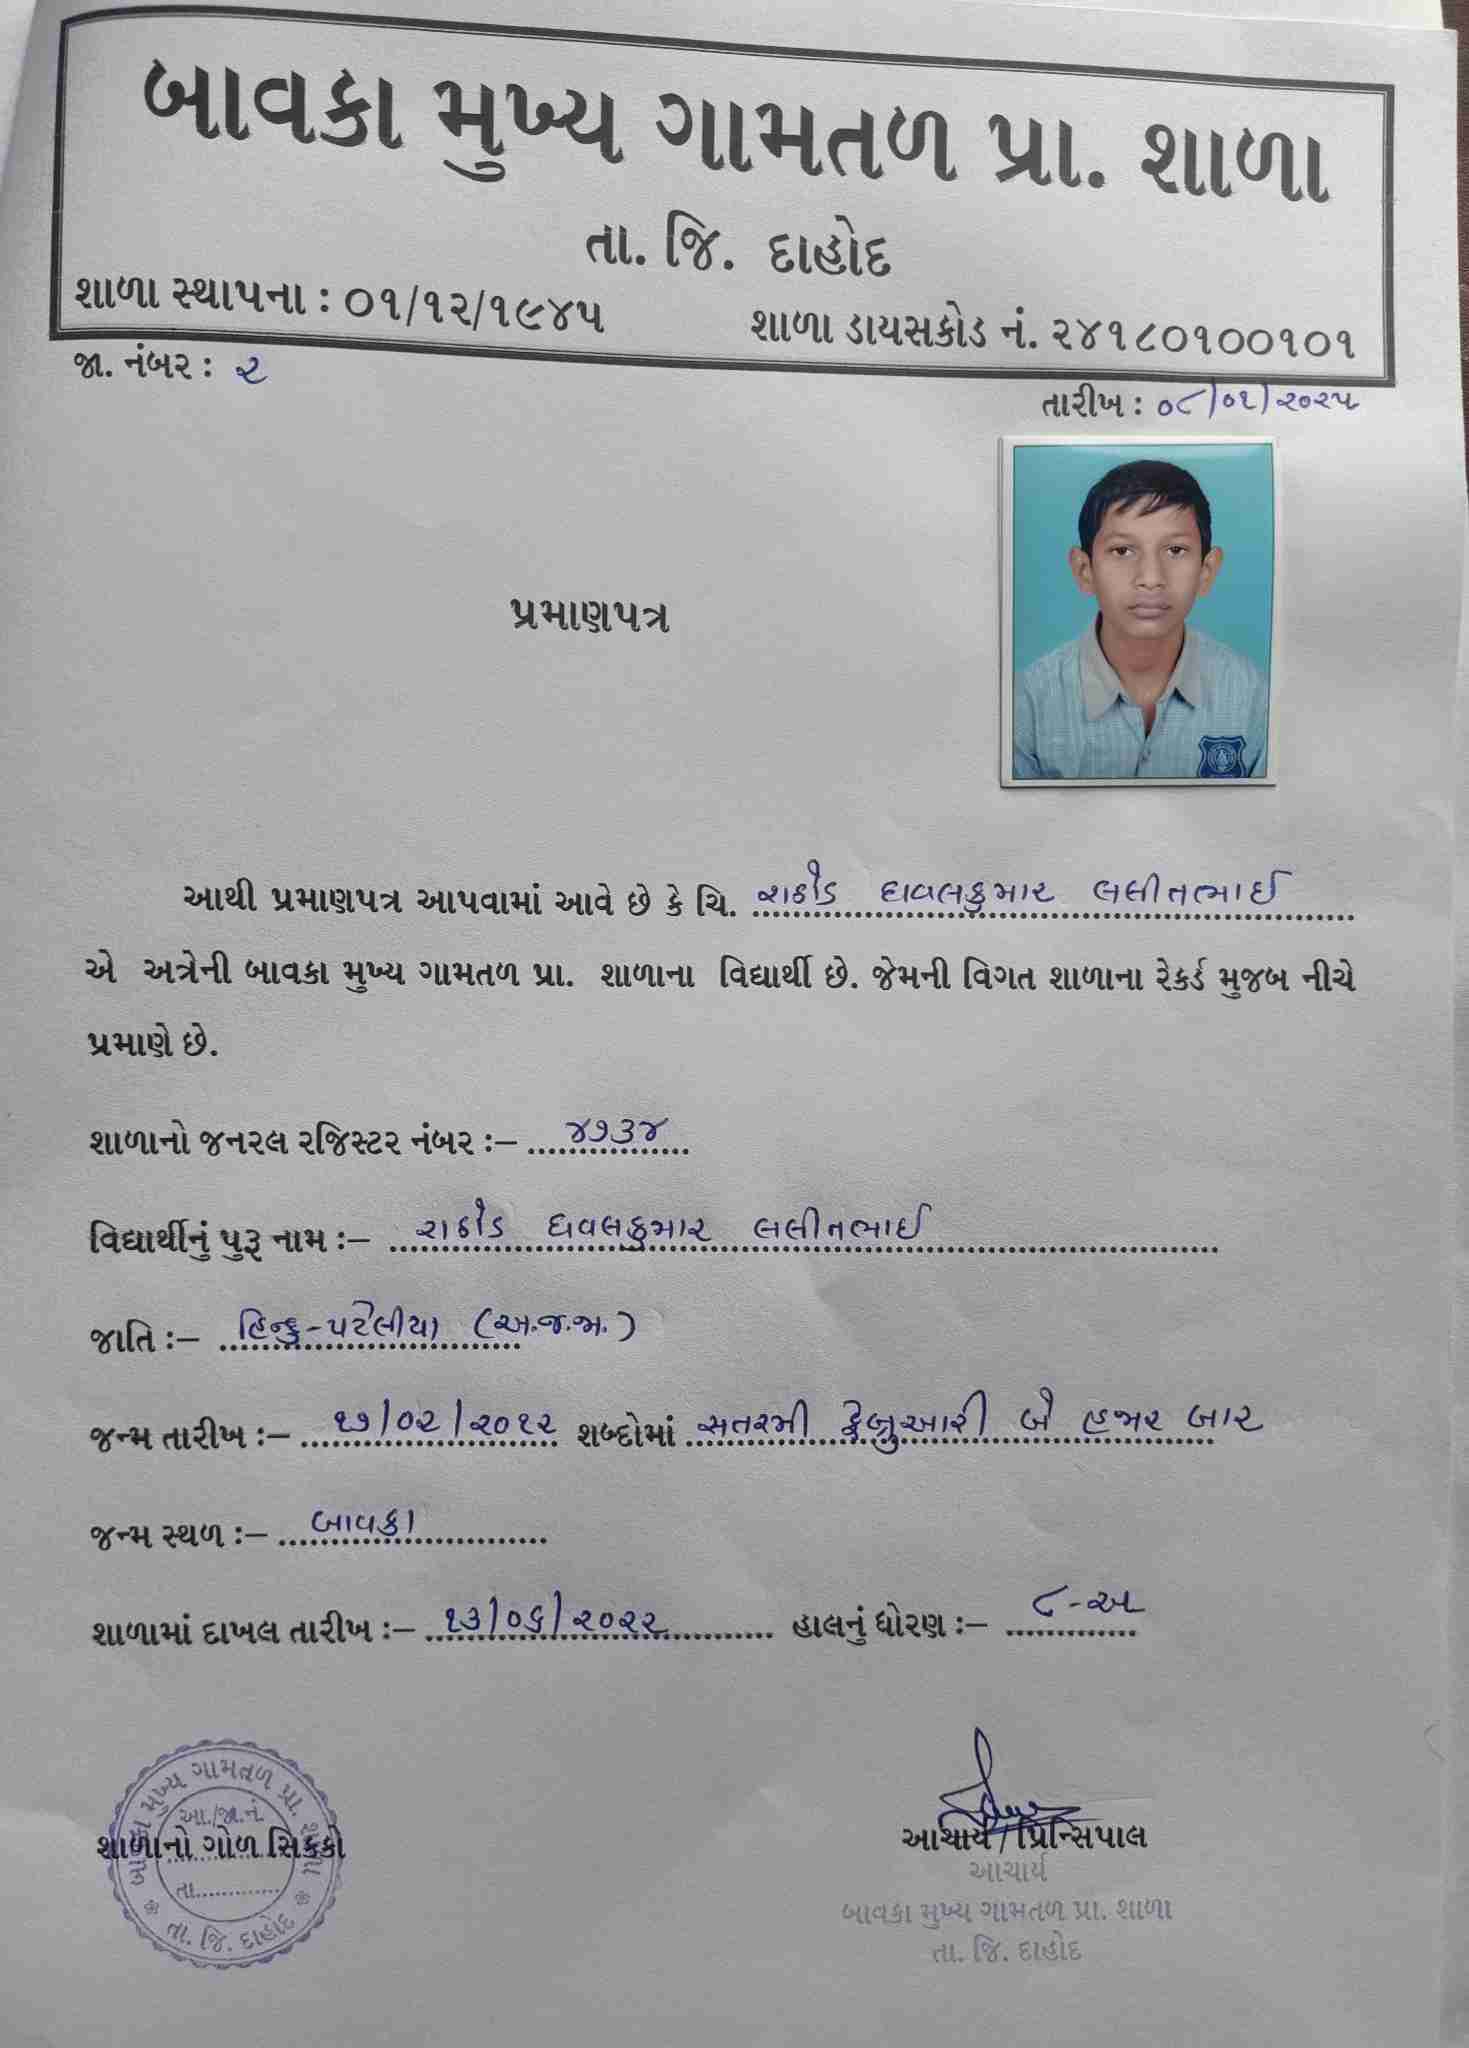 બાવકા મુખ્ય ગામતળ પ્રા. શાળા
તા. જિ. દાહોદ
શાળા સ્થાપના : ૦૧/૧૨/૧૯૪૫ શાળા ડાયસકોડ નં. ૨૪૧૮૦૧૦૦૧૦૧
જા. નંબર : ૨
તારીખ : ૦૮/૦૧/૨૦૨૫
પ્રમાણપત્ર
આથી પ્રમાણપત્ર આપવામાં આવે છે કે ચિ. રાઠોડ ધવલકુમાર લલીતભાઈ
એ અત્રેની બાવકા મુખ્ય ગામતળ પ્રા. શાળાના વિદ્યાર્થી છે. જેમની વિગત શાળાના રેકર્ડ મુજબ નીચે
પ્રમાણે છે.
શાળાનો જનરલ રજિસ્ટર નંબર :– ૪૭૩૪
વિદ્યાર્થીનું પુરૂ નામ :– રાઠોડ ધવલકુમાર લલીતભાઈ
જાતિ :– હિન્દુ-પટેલીયા (અ.જ.જા.)
જન્મ તારીખ :– ૧૭/૦૨/૨૦૧૨ શબ્દોમાં સતરમી ફેબ્રુઆરી બે હજાર બાર
જન્મ સ્થળ :– બાવકા
શાળામાં દાખલ તારીખ :– ૧૩/૦૬/૨૦૨૨ હાલનું ધોરણ :– ૮-અ
બાવકા મુખ્ય ગામતળ પ્રા. શાળા
આ./જા.નં.
શાળાનો ગોળ સિક્કો
તા.
તા. જિ. દાહોદ
આચાર્ય / પ્રિન્સિપાલ
આચાર્ય
બાવકા મુખ્ય ગામતળ પ્રા. શાળા
તા. જિ. દાહોદ